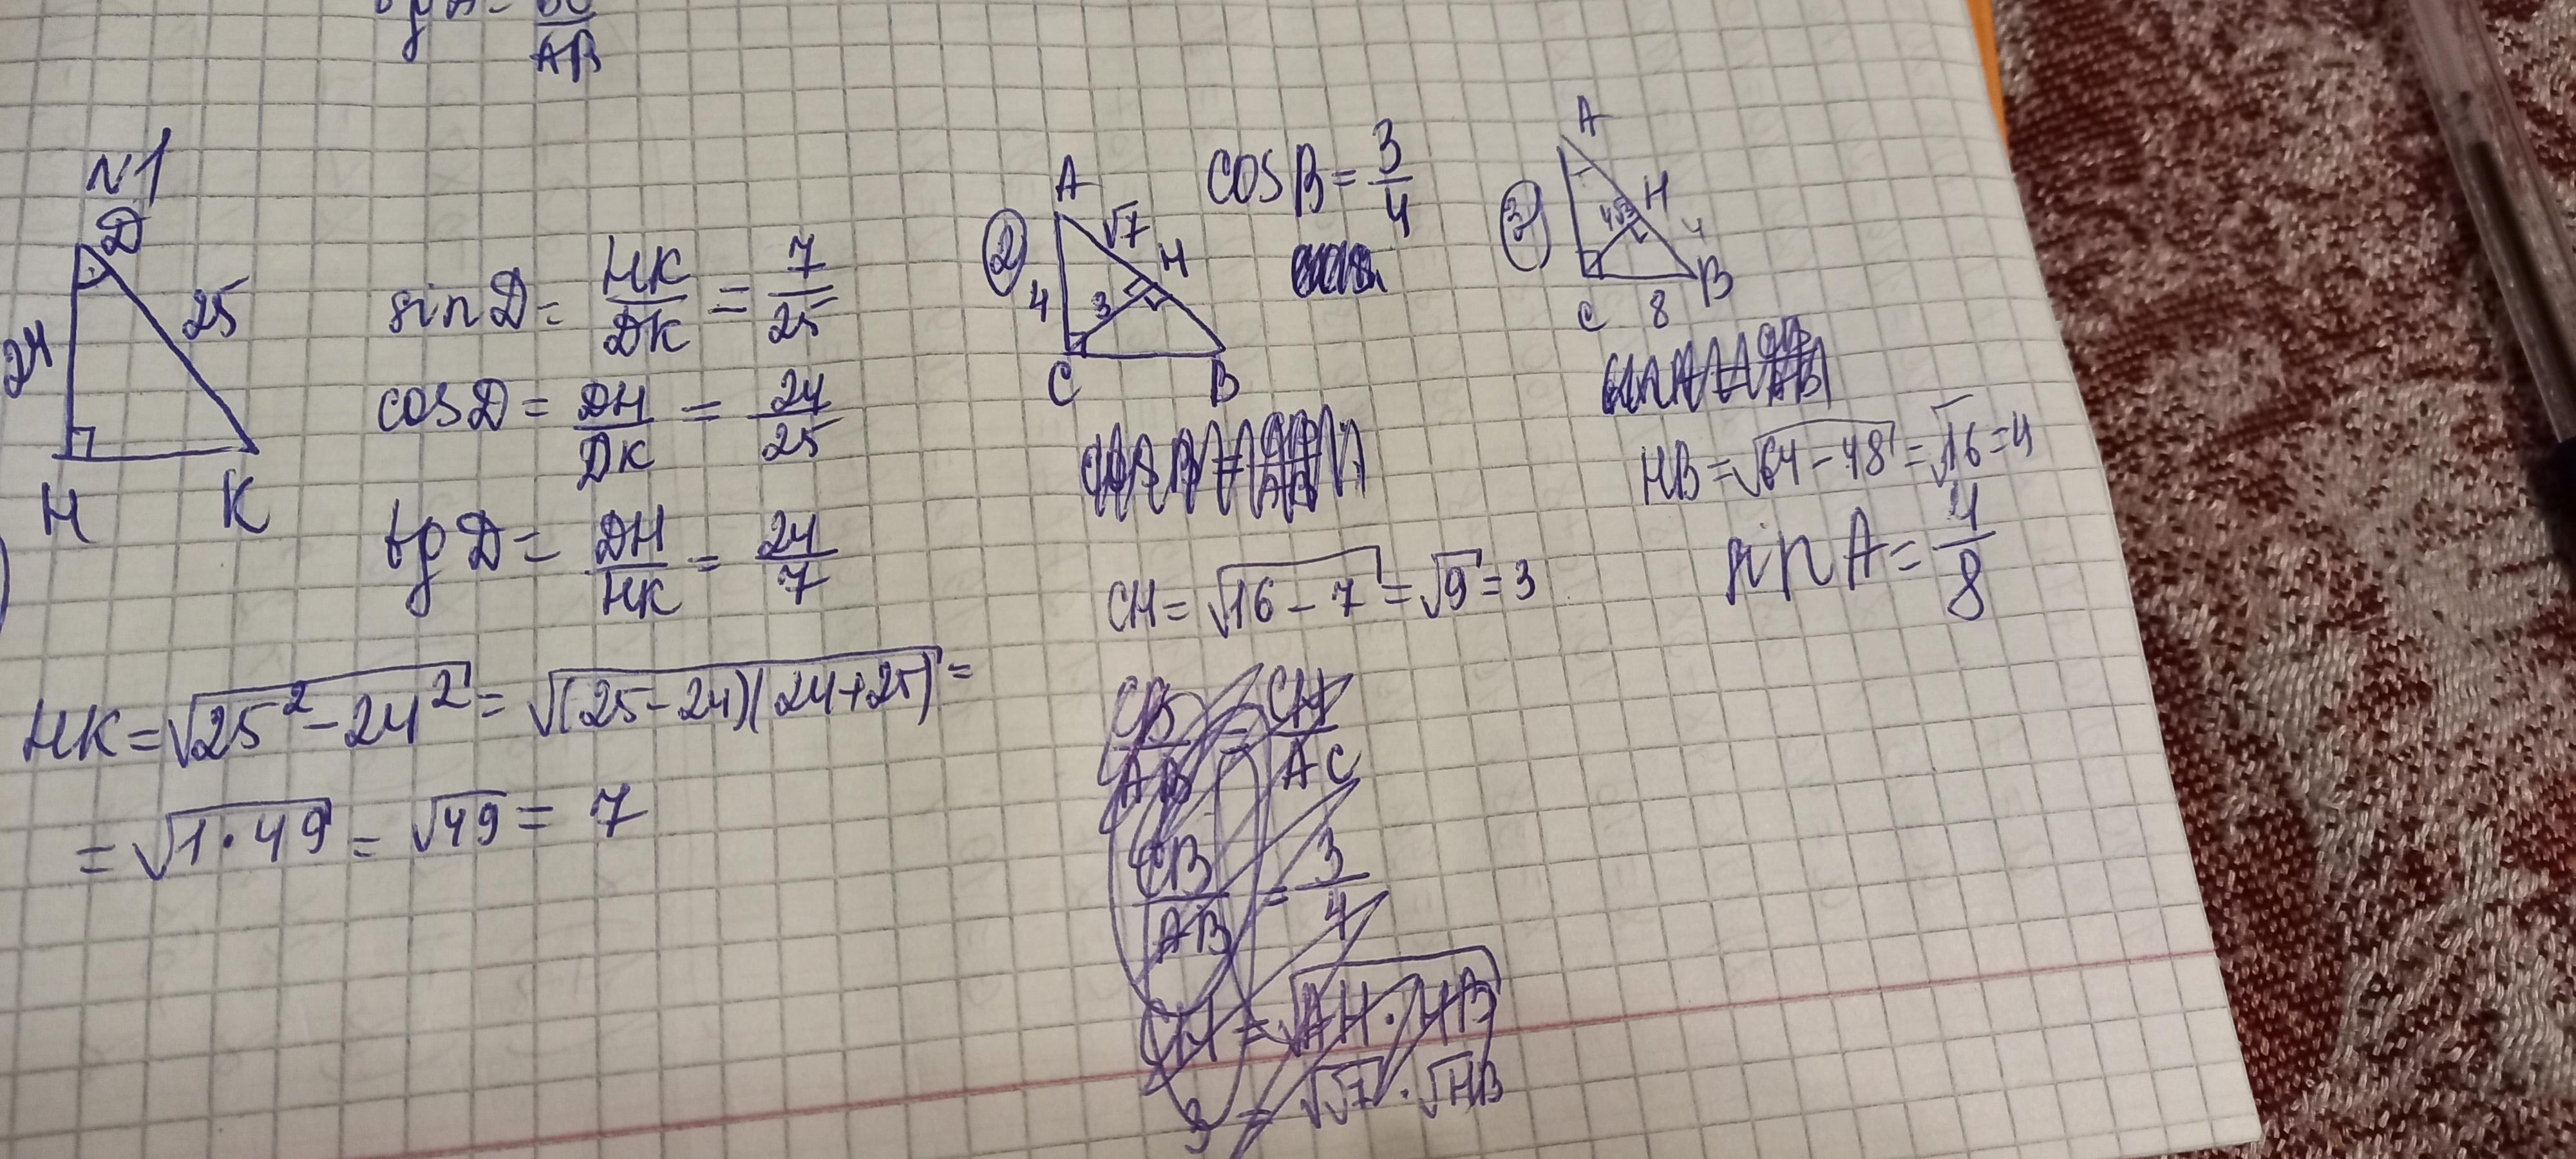 AB
N1
D
24
25
H
K
sin D = HK/DK = 7/25
cos D = DH/DK = 24/25
tg D = DH/HK = 24/7
HK = √(25² - 24²) = √((25-24)(24+25)) =
= √(1·49) = √49 = 7
②
A
√7
H
4
3
C
B
cos B = 3/4
CH = √(16 - 7) = √9 = 3
CB/AB = CH/AC
CB/AB = 3/4
CH = √(AH·HB)
3 = √√7 · √HB
③
A
H
4√3
4
C
8
B
HB = √(64 - 48) = √16 = 4
sin A = 4/8